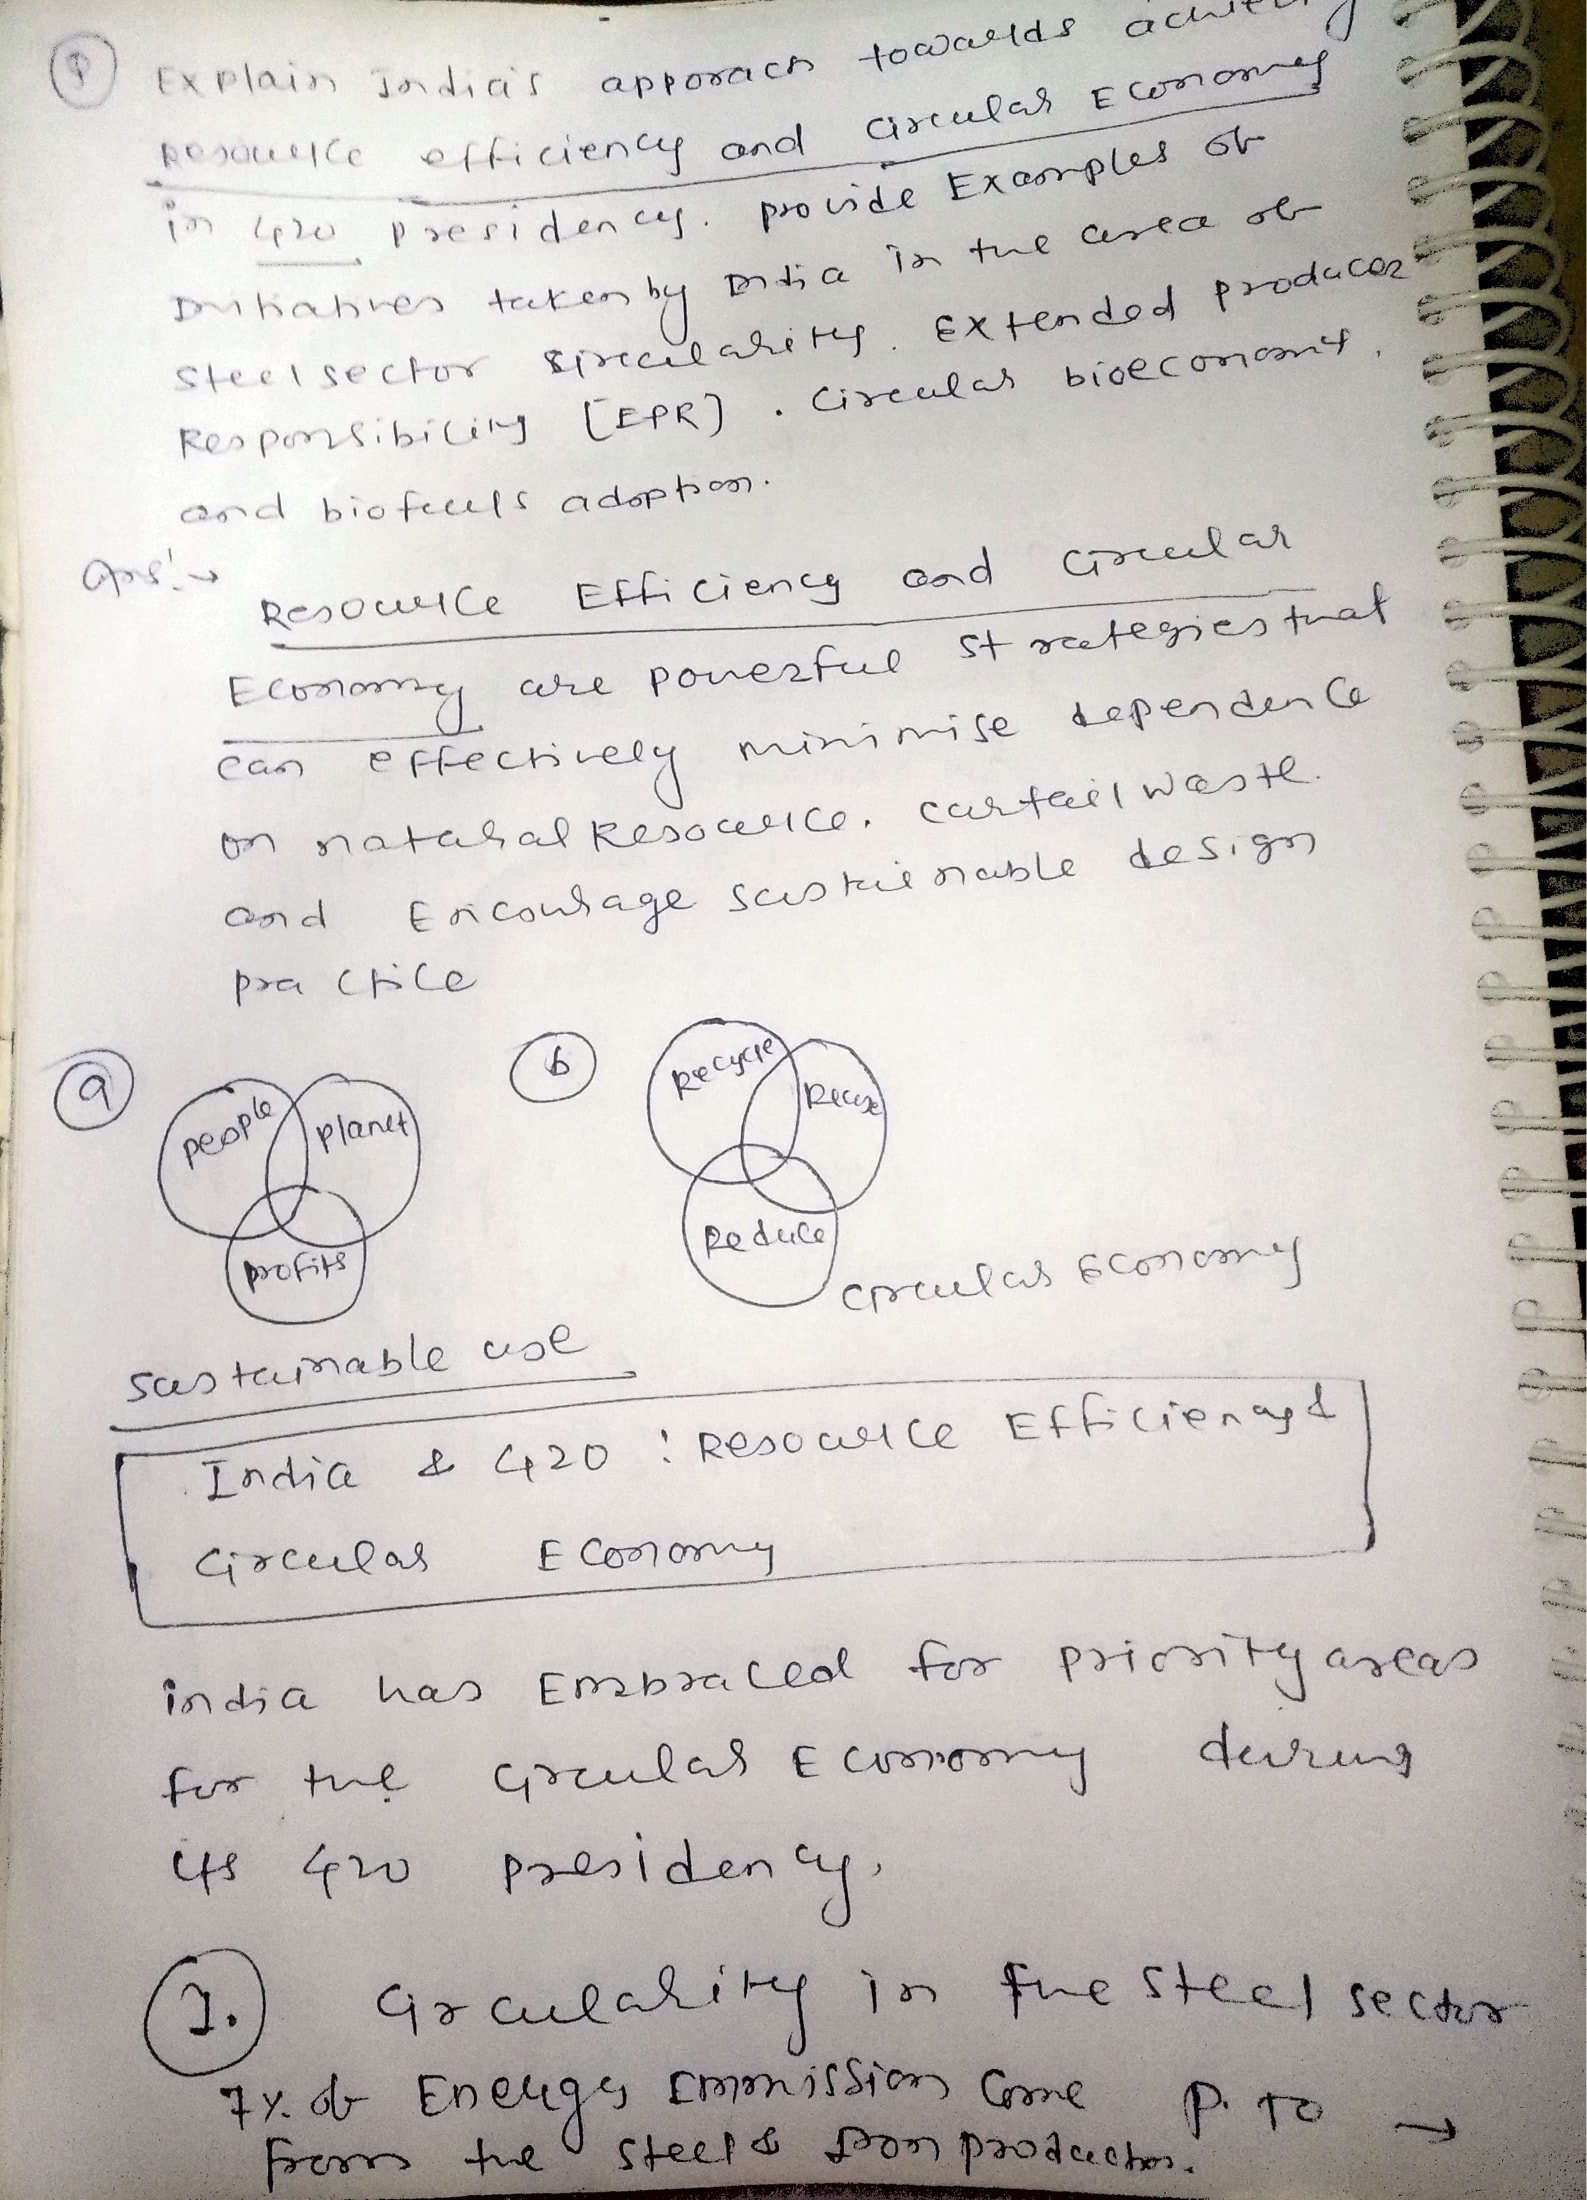 Q Explain India's apporach towards achiev
Resource efficiency and Circular Economy
in G20 presidency. provide Examples of
Initiatives taken by India in the area of
Steel sector circularity. Extended producer
Responsibility [EPR]. Circular bioeconomy,
and biofuels adoption.
Ans:→
Resource Efficiency and Circular
Economy are powerful strategies that
can effectively minimise dependence
on natural Resource, curtail waste.
and Encourage sustainable design
practice
a b
people planet profits
Recycle Reuse Reduce
Circular Economy
sustainable use
India & G20 : Resource Efficiency &
Circular Economy
india has Embraced for priority areas
for the Circular Economy during
its G20 presidency,
1. Circularity in the Steel sector
7%. of Energy Emmission Come P. TO →
from the steel & Iron production.